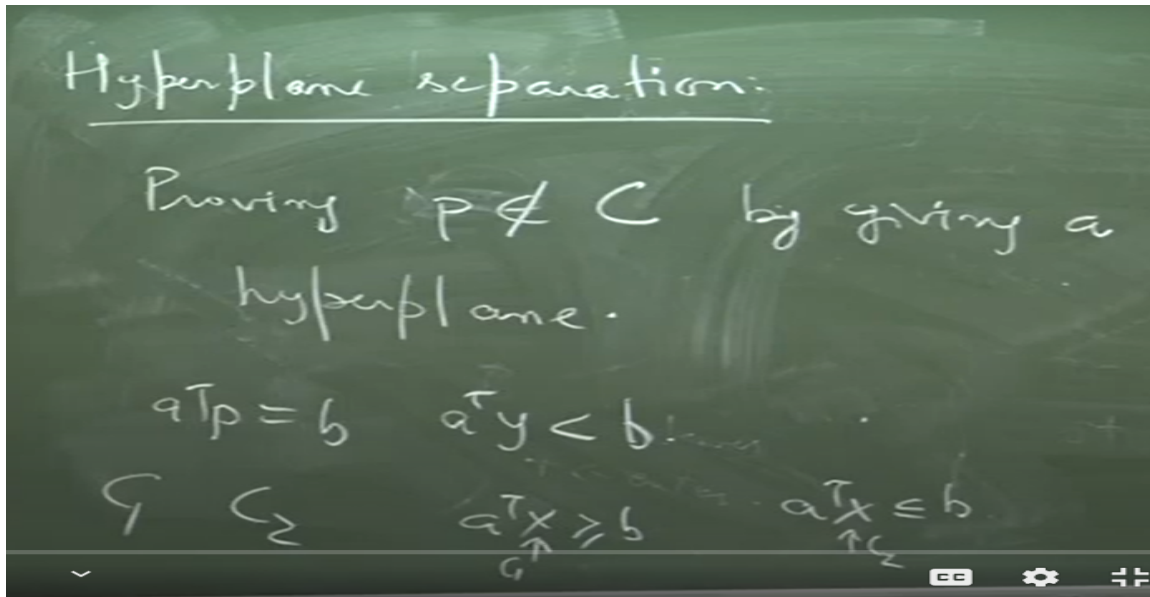 Hyperplane separation:
Proving p ∉ C by giving a
hyperplane.
aᵀp = b aᵀy < b
C₁ C₂ aᵀx ≥ b aᵀx ≤ b
↑ C₁ ↑ C₂
CC